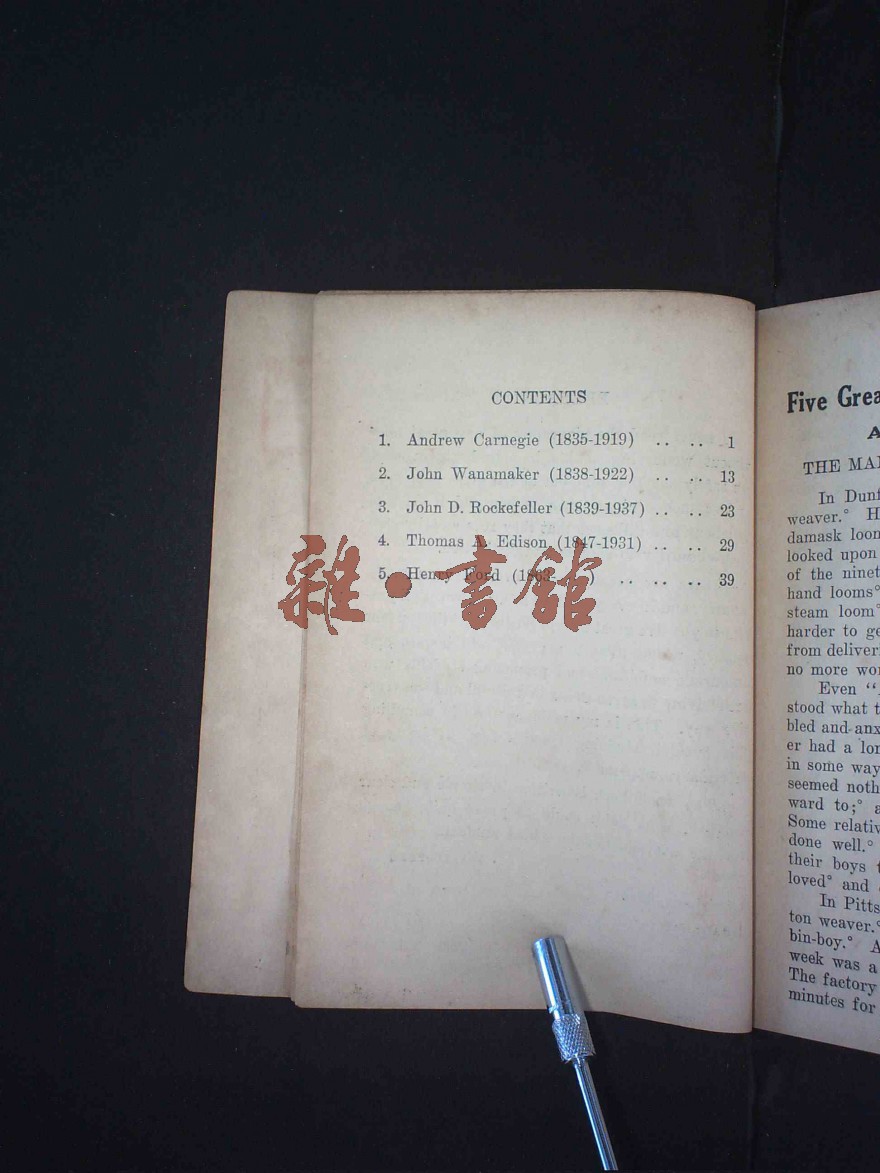 CONTENTS
1. Andrew Carnegie (1835-1919) .. .. 1
2. John Wanamaker (1838-1922) .. .. 13
3. John D. Rockefeller (1839-1937) .. .. 23
4. Thomas A. Edison (1847-1931) .. .. 29
5. Henry Ford (1863- ) .. .. .. 39
雜·書館
Five Grea
A
THE MAN
In Dunf
weaver.° H
damask loom
looked upon
of the ninet
hand looms°
steam loom°
harder to ge
from deliver
no more wor
Even “
stood what t
bled and anx
er had a lon
in some way
seemed noth
ward to;° a
Some relativ
done well.°
their boys t
loved° and
In Pitts
ton weaver.°
bin-boy.° A
week was a
The factory
minutes for